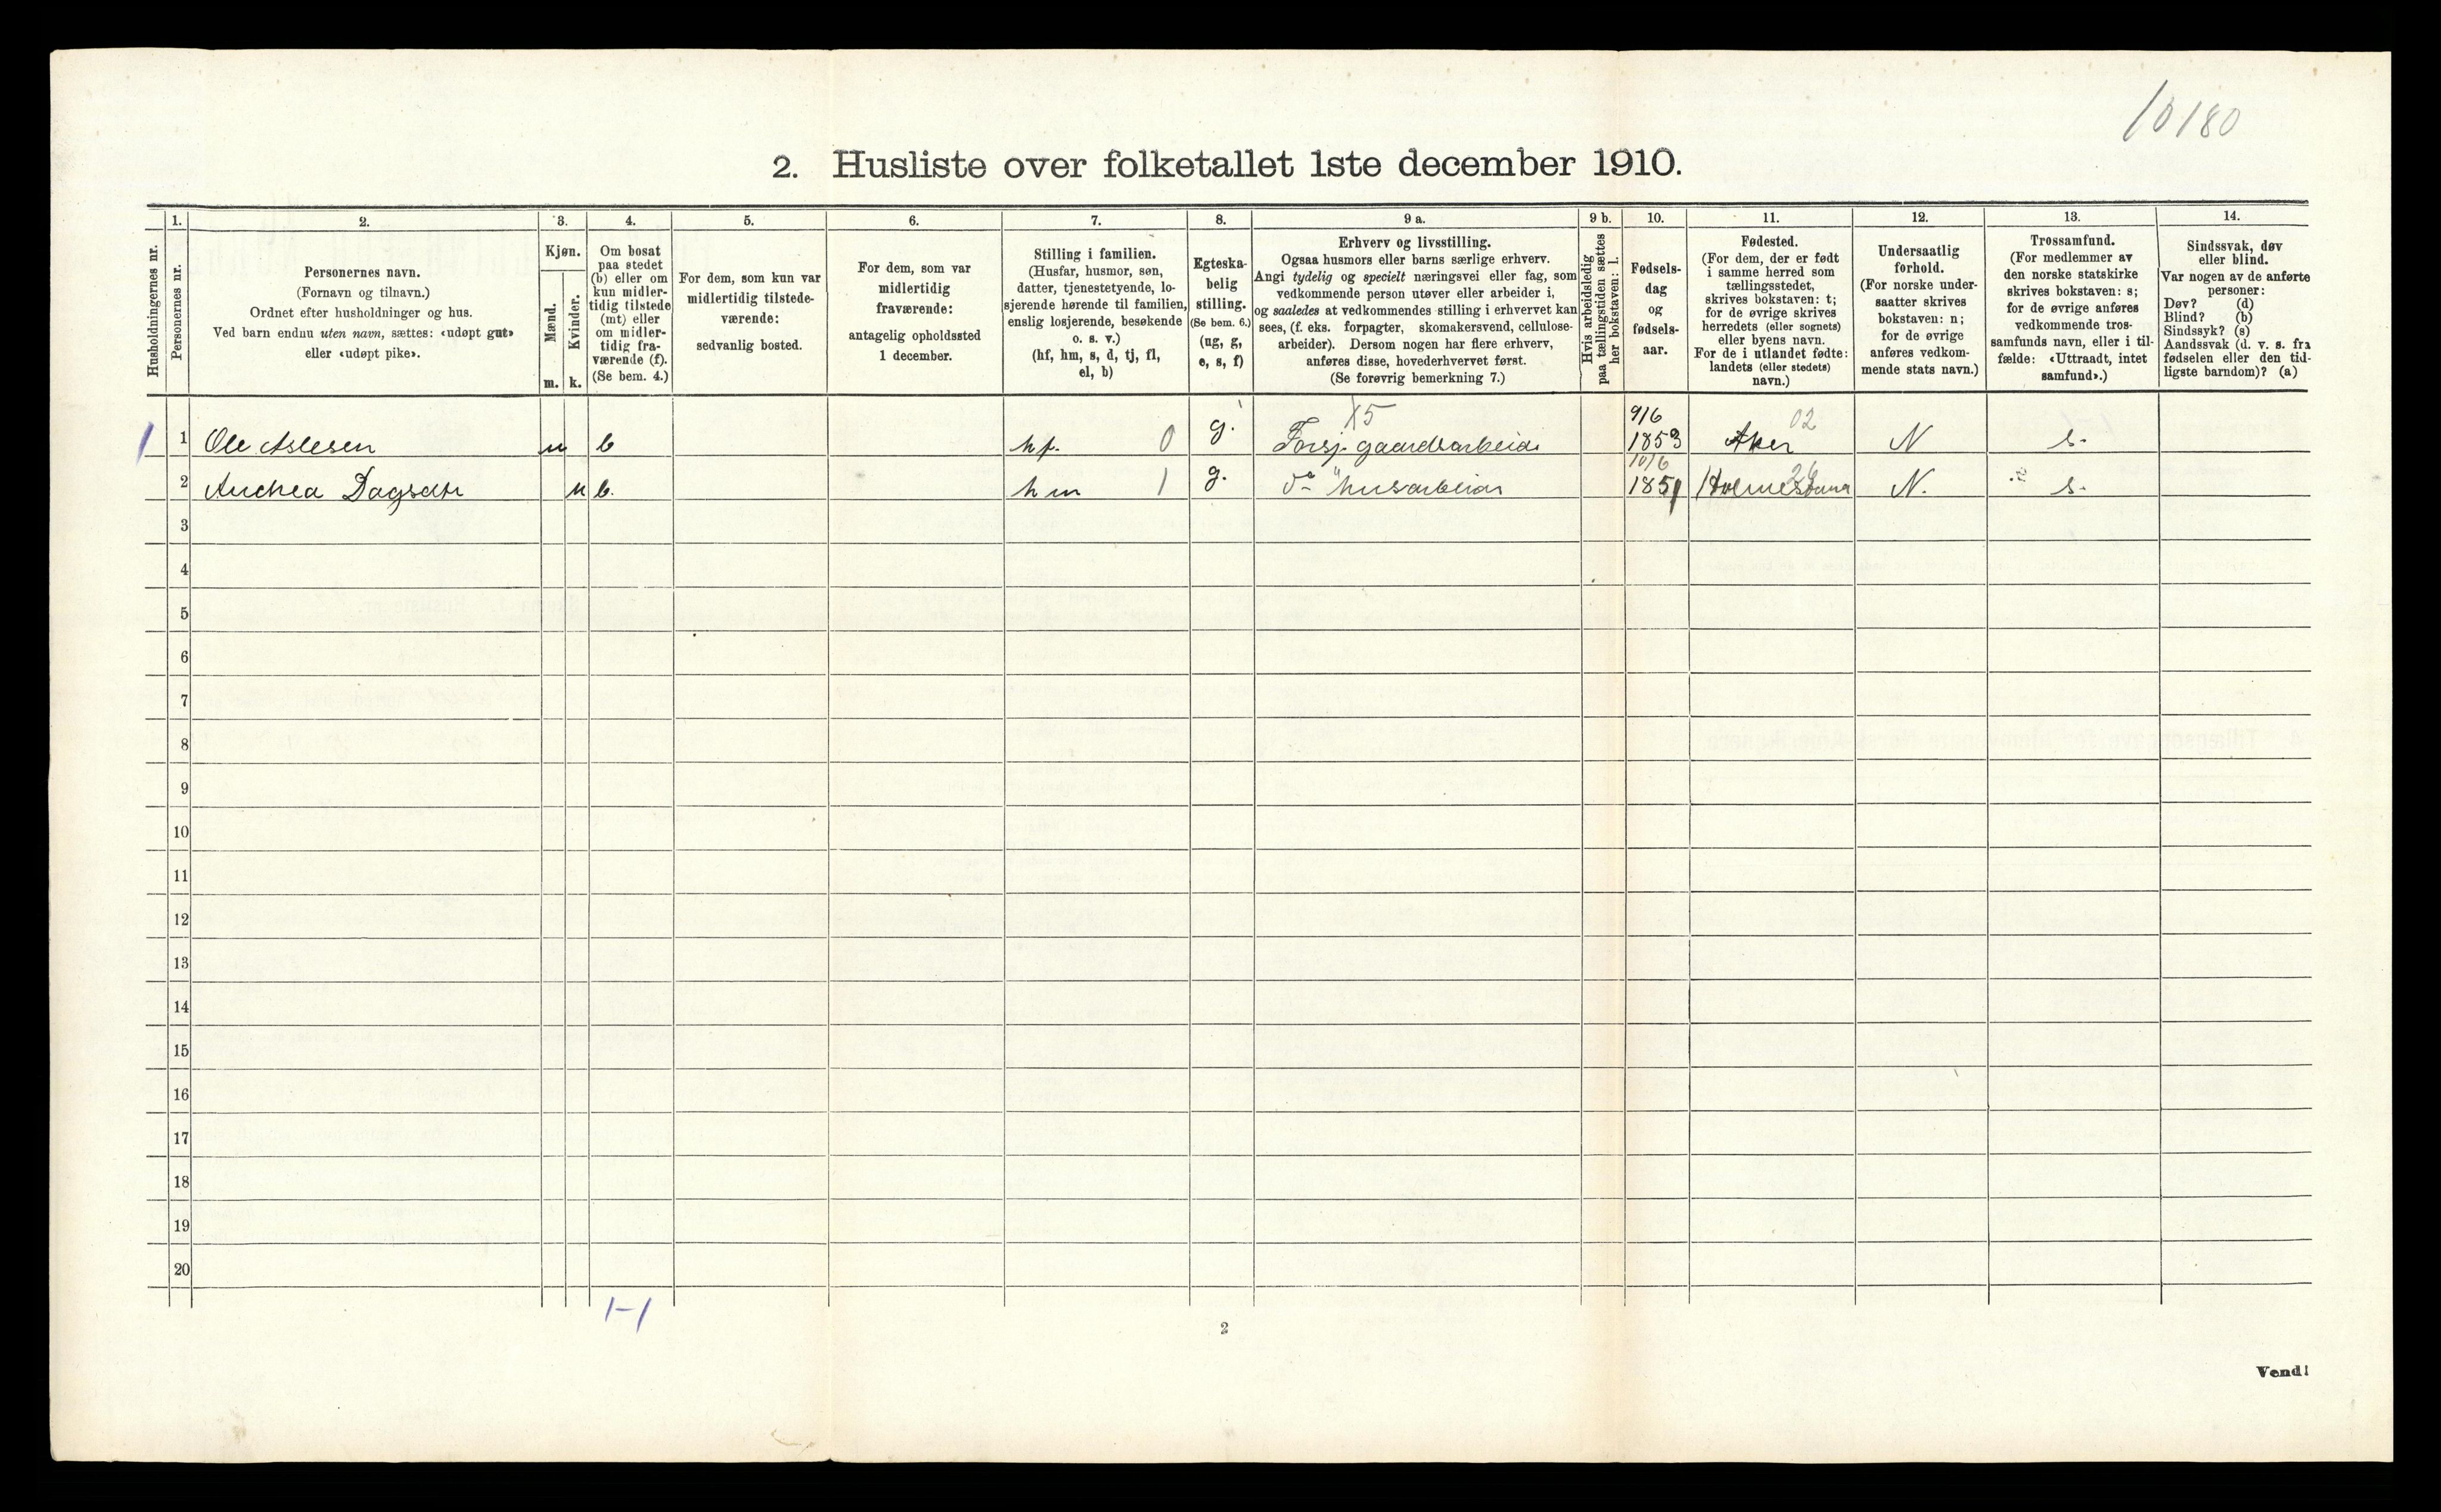 10180
2. Husliste over folketallet 1ste december 1910.
Husholdningernes nr.
1.
Personernes nr.
2.
Personernes navn.
(Fornavn og tilnavn.)
Ordnet efter husholdninger og hus.
Ved barn endnu uten navn, sættes: «udøpt gut»
eller «udøpt pike».
3.
Kjøn.
Mænd.
m.
Kvinder.
k.
4.
Om bosat
paa stedet
(b) eller om
kun midler-
tidig tilstede
(mt) eller
om midler-
tidig fra-
værende (f).
(Se bem. 4.)
5.
For dem, som kun var
midlertidig tilstede-
værende:
sedvanlig bosted.
6.
For dem, som var
midlertidig
fraværende:
antagelig opholdssted
1 december.
7.
Stilling i familien.
(Husfar, husmor, søn,
datter, tjenestetyende, lo-
sjerende hørende til familien,
enslig losjerende, besøkende
o. s. v.)
(hf, hm, s, d, tj, fl,
el, b)
8.
Egteska-
belig
stilling.
(Se bem. 6.)
(ug, g,
e, s, f)
9 a.
Erhverv og livsstilling.
Ogsaa husmors eller barns særlige erhverv.
Angi tydelig og specielt næringsvei eller fag, som
vedkommende person utøver eller arbeider i,
og saaledes at vedkommendes stilling i erhvervet kan
sees, (f. eks. forpagter, skomakersvend, cellulose-
arbeider). Dersom nogen har flere erhverv,
anføres disse, hovederhvervet først.
(Se forøvrig bemerkning 7.)
9 b.
Hvis arbeidsledig
paa tællingstiden sættes
her bokstaven: l.
10.
Fødsels-
dag
og
fødsels-
aar.
11.
Fødested.
(For dem, der er født
i samme herred som
tællingsstedet,
skrives bokstaven: t;
for de øvrige skrives
herredets (eller sognets)
eller byens navn.
For de i utlandet fødte:
landets (eller stedets)
navn.)
12.
Undersaatlig
forhold.
(For norske under-
saatter skrives
bokstaven: n;
for de øvrige
anføres vedkom-
mende stats navn.)
13.
Trossamfund.
(For medlemmer av
den norske statskirke
skrives bokstaven: s;
for de øvrige anføres
vedkommende tros-
samfunds navn, eller i til-
fælde: «Uttraadt, intet
samfund».)
14.
Sindssvak, døv
eller blind.
Var nogen av de anførte
personer:
Døv? (d)
Blind? (b)
Sindssyk? (s)
Aandssvak (d. v. s. fra
fødselen eller den tid-
ligste barndom)? (a)
X5 9/6 02
1 1 Ole Aslesen m b hf. 0 g. Forsj. gaardsarbeide 1853 Aker N s.
10/6 26
2 Andrea Dagsdtr k b. hm 1 g. do husarbeide 1851 Holmestrand N. s.
3
4
5
6
7
8
9
10
11
12
13
14
15
16
17
18
19
20
1-1
2
Vend!